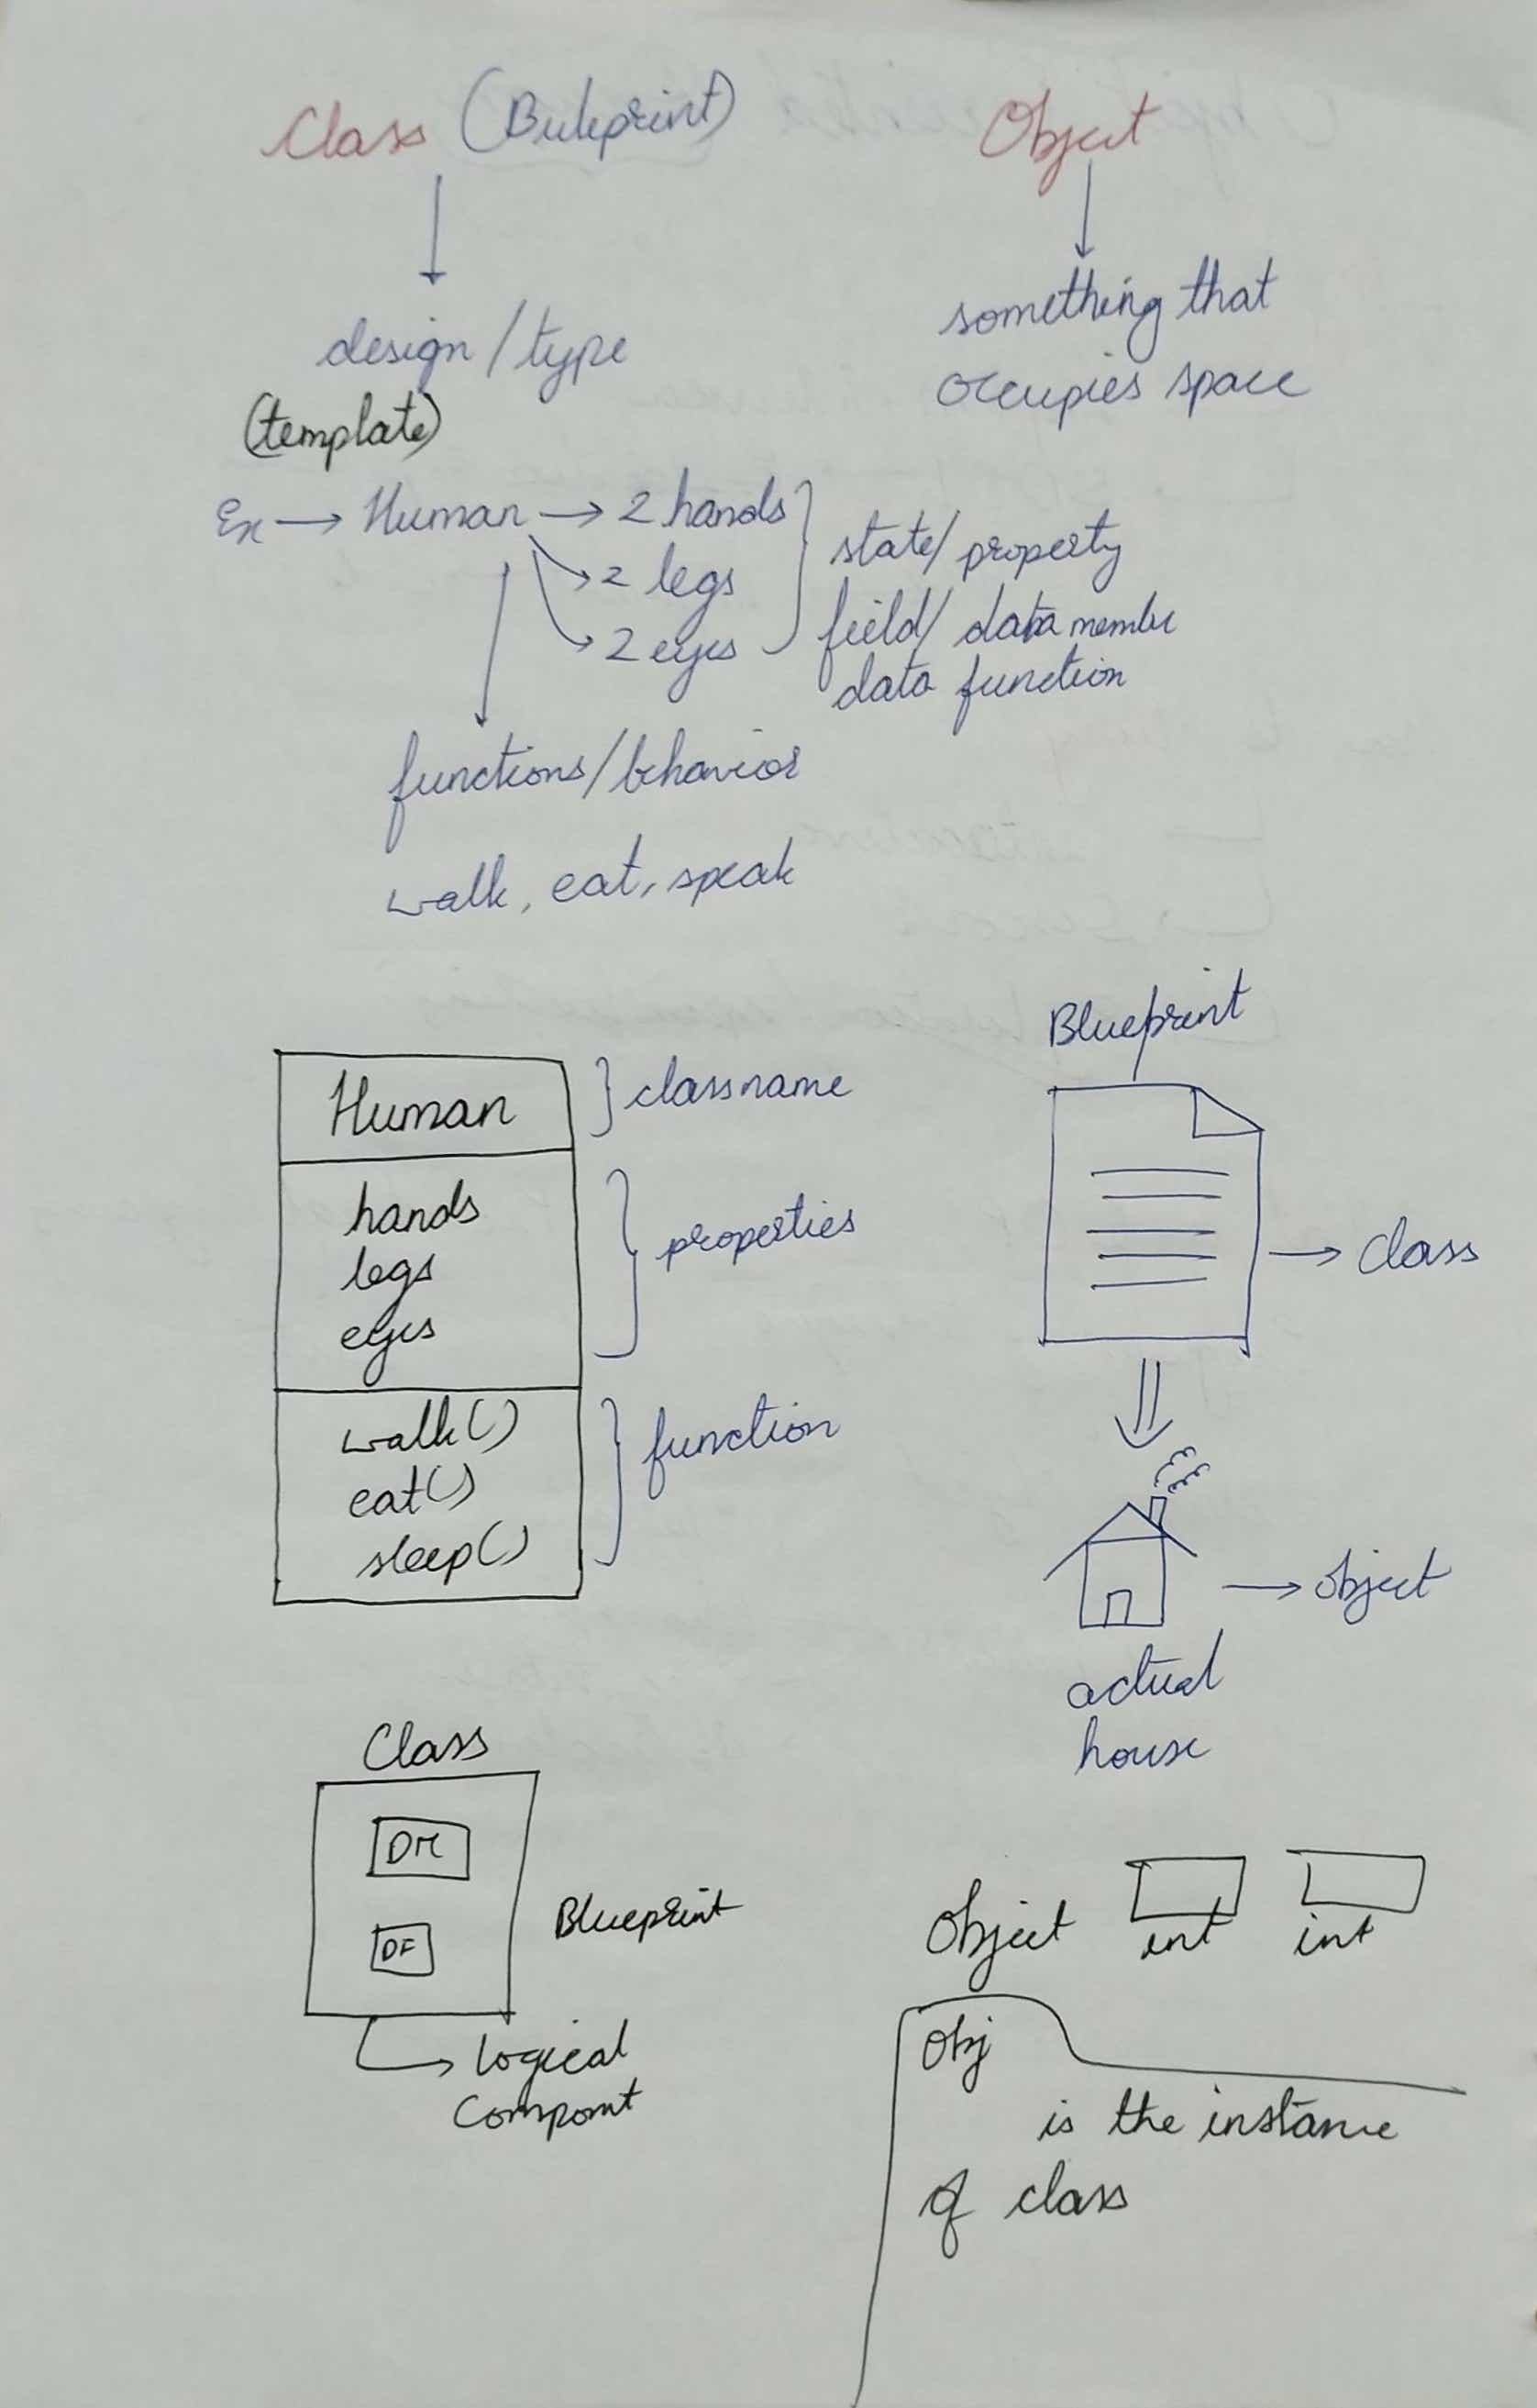 Class (Buleprint)
Object
design / type
(template)
something that
occupies space
Ex → Human → 2 hands
→ 2 legs
→ 2 eyes
state/ property
field/ data member
data function
functions/behavior
walk, eat, speak
Human
classname
hands
legs
eyes
properties
walk()
eat()
sleep()
function
Blueprint
→ Class
→ object
actual
house
Class
DM
DF
Blueprint
Logical
Compomt
Object
int
int
Obj
is the instance
of class